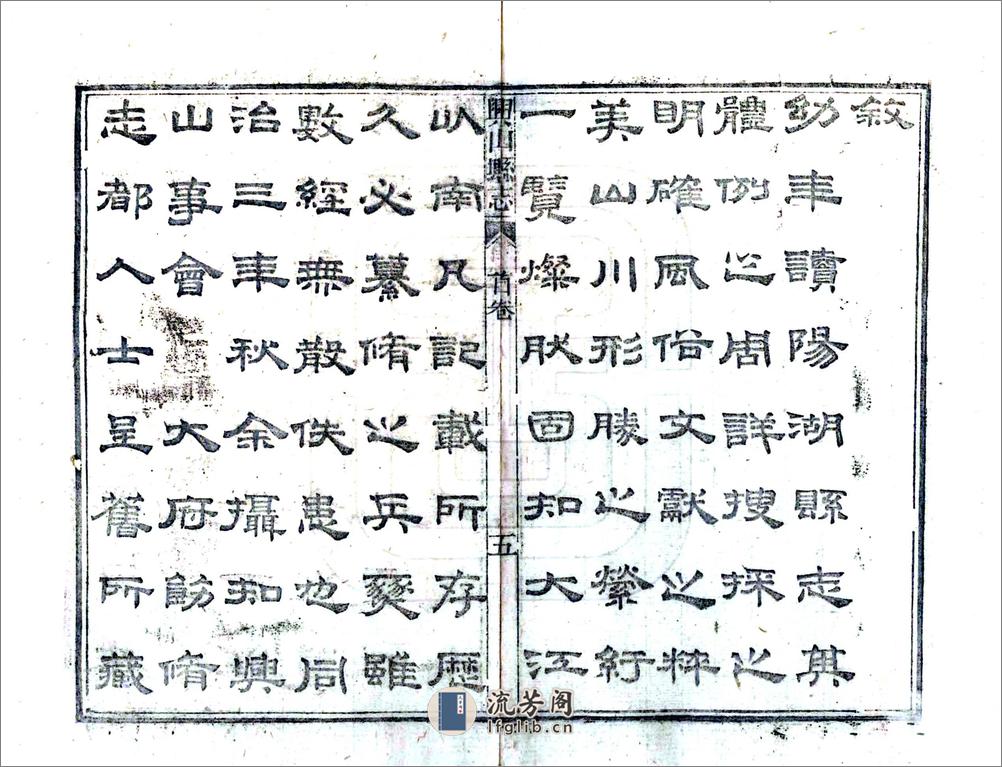 敘
幼年讀陽湖縣志其
體例之周詳搜採之
明確風俗文獻之粹
美山川形勝之縈紆
一覽燦然固知大江
興山縣志 首卷 五
以南凡記載所存歷
久必纂脩之兵燹雖
數經無散佚患也同
治三年秋余攝知興
山事會 大府飭脩
志都人士呈舊所藏
流芳阁
lfglib.cn